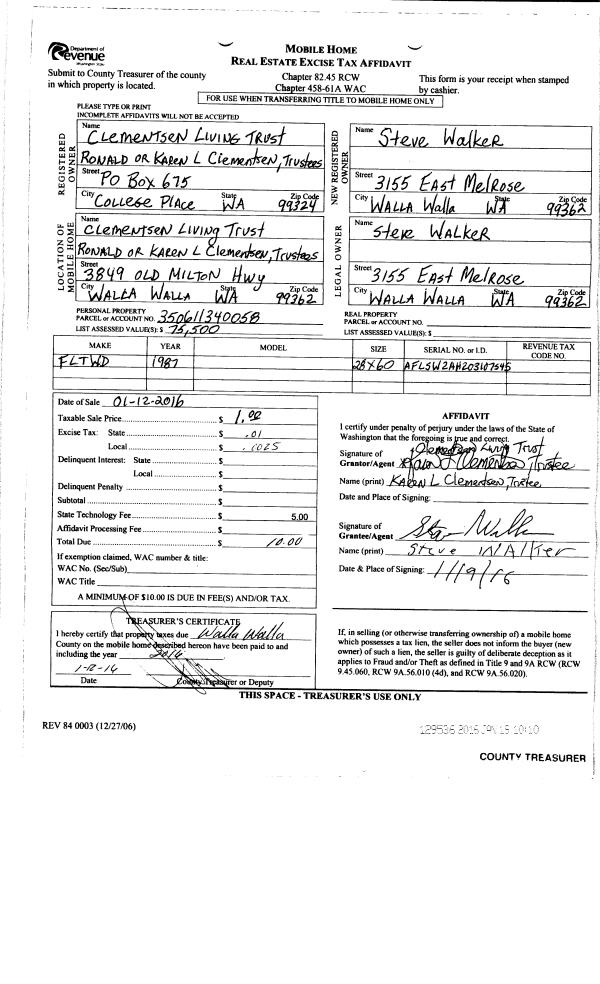 Department of
Revenue
Washington State
MOBILE HOME
REAL ESTATE EXCISE TAX AFFIDAVIT
Submit to County Treasurer of the county
in which property is located.
Chapter 82.45 RCW
Chapter 458-61A WAC
This form is your receipt when stamped
by cashier.
FOR USE WHEN TRANSFERRING TITLE TO MOBILE HOME ONLY
PLEASE TYPE OR PRINT
INCOMPLETE AFFIDAVITS WILL NOT BE ACCEPTED
REGISTERED
OWNER
Name
Clementsen Living Trust
Ronald or Karen L Clementsen, Trustees
Street PO Box 675
City College Place State WA Zip Code 99324
NEW REGISTERED
OWNER
Name Steve Walker
Street 3155 East Melrose
City Walla Walla State WA Zip Code 99362
LOCATION OF
MOBILE HOME
Name
Clementsen Living Trust
Ronald or Karen L Clementsen, Trustees
Street
3849 Old Milton Hwy
City Walla Walla State WA Zip Code 99362
LEGAL OWNER
Name
Steve Walker
Street 3155 East Melrose
City Walla Walla State WA Zip Code 99362
PERSONAL PROPERTY
PARCEL or ACCOUNT NO. 350611340058
LIST ASSESSED VALUE(S): $ 75,500
REAL PROPERTY
PARCEL or ACCOUNT NO.
LIST ASSESSED VALUE(S): $
MAKE YEAR MODEL SIZE SERIAL NO. or I.D. REVENUE TAX
CODE NO.
FLTWD 1987 28x60
Date of Sale 01-12-2016
Taxable Sale Price $ 1.00
Excise Tax: State $ .01
Local $ .0025
Delinquent Interest: State $
Local $
Delinquent Penalty $
Subtotal $
State Technology Fee $ 5.00
Affidavit Processing Fee $
Total Due $ 10.00
If exemption claimed, WAC number & title:
WAC No. (Sec/Sub)
WAC Title
A MINIMUM OF $10.00 IS DUE IN FEE(S) AND/OR TAX.
AFFIDAVIT
I certify under penalty of perjury under the laws of the State of
Washington that the foregoing is true and correct.
Clementsen Living Trust
Signature of
Grantor/Agent Karen L Clementsen Trustee
Name (print) Karen L Clementsen, Trustee
Date and Place of Signing:
Signature of
Grantee/Agent
Name (print) Steve Walker
Date & Place of Signing: 1/19/16
TREASURER'S CERTIFICATE
I hereby certify that property taxes due Walla Walla
County on the mobile home described hereon have been paid to and
including the year 2016
Date County Treasurer or Deputy
If, in selling (or otherwise transferring ownership of) a mobile home
which possesses a tax lien, the seller does not inform the buyer (new
owner) of such a lien, the seller is guilty of deliberate deception as it
applies to Fraud and/or Theft as defined in Title 9 and 9A RCW (RCW
9.45.060, RCW 9A.56.010 (4d), and RCW 9A.56.020).
THIS SPACE - TREASURER'S USE ONLY
REV 84 0003 (12/27/06)
129536 2016 JAN 19 10:10
COUNTY TREASURER